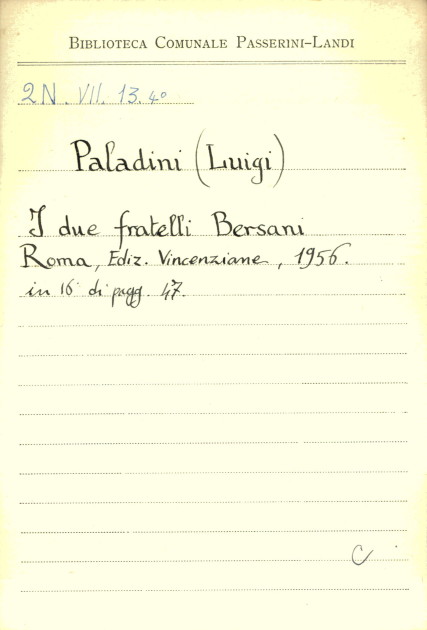 BIBLIOTECA COMUNALE PASSERINI-LANDI
2N. VII. 13. 4º
Paladini (Luigi)
I due fratelli Bersani
Roma, Ediz. Vincenziane, 1956.
in 16º di pagg. 47.
C